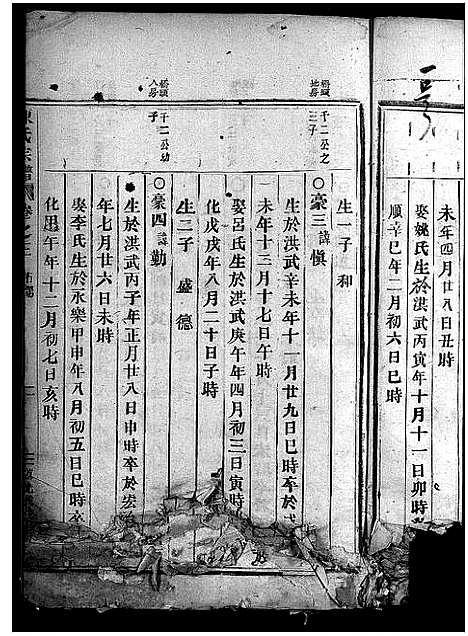 未年四月廿八日丑時
娶姚氏生於洪武丙寅年十月十一日卯時
順辛巳年二月初六日巳時
生一子　和
千二公之
三子
○豪三諱愼
生於洪武辛未年十一月廿九日巳時卒於
未年十三月十七日午時
娶呂氏生於洪武庚午年四月初三日寅時
化戊戌年八月二十日子時
生二子　盛　德
千二公幼
子
○豪四諱勤
生於洪武丙子年正月廿八日申時卒於宏
年七月廿六日未時
娶李氏生於永樂甲申年八月初五日巳時卒
化年十二月初七日亥時
氏宗譜